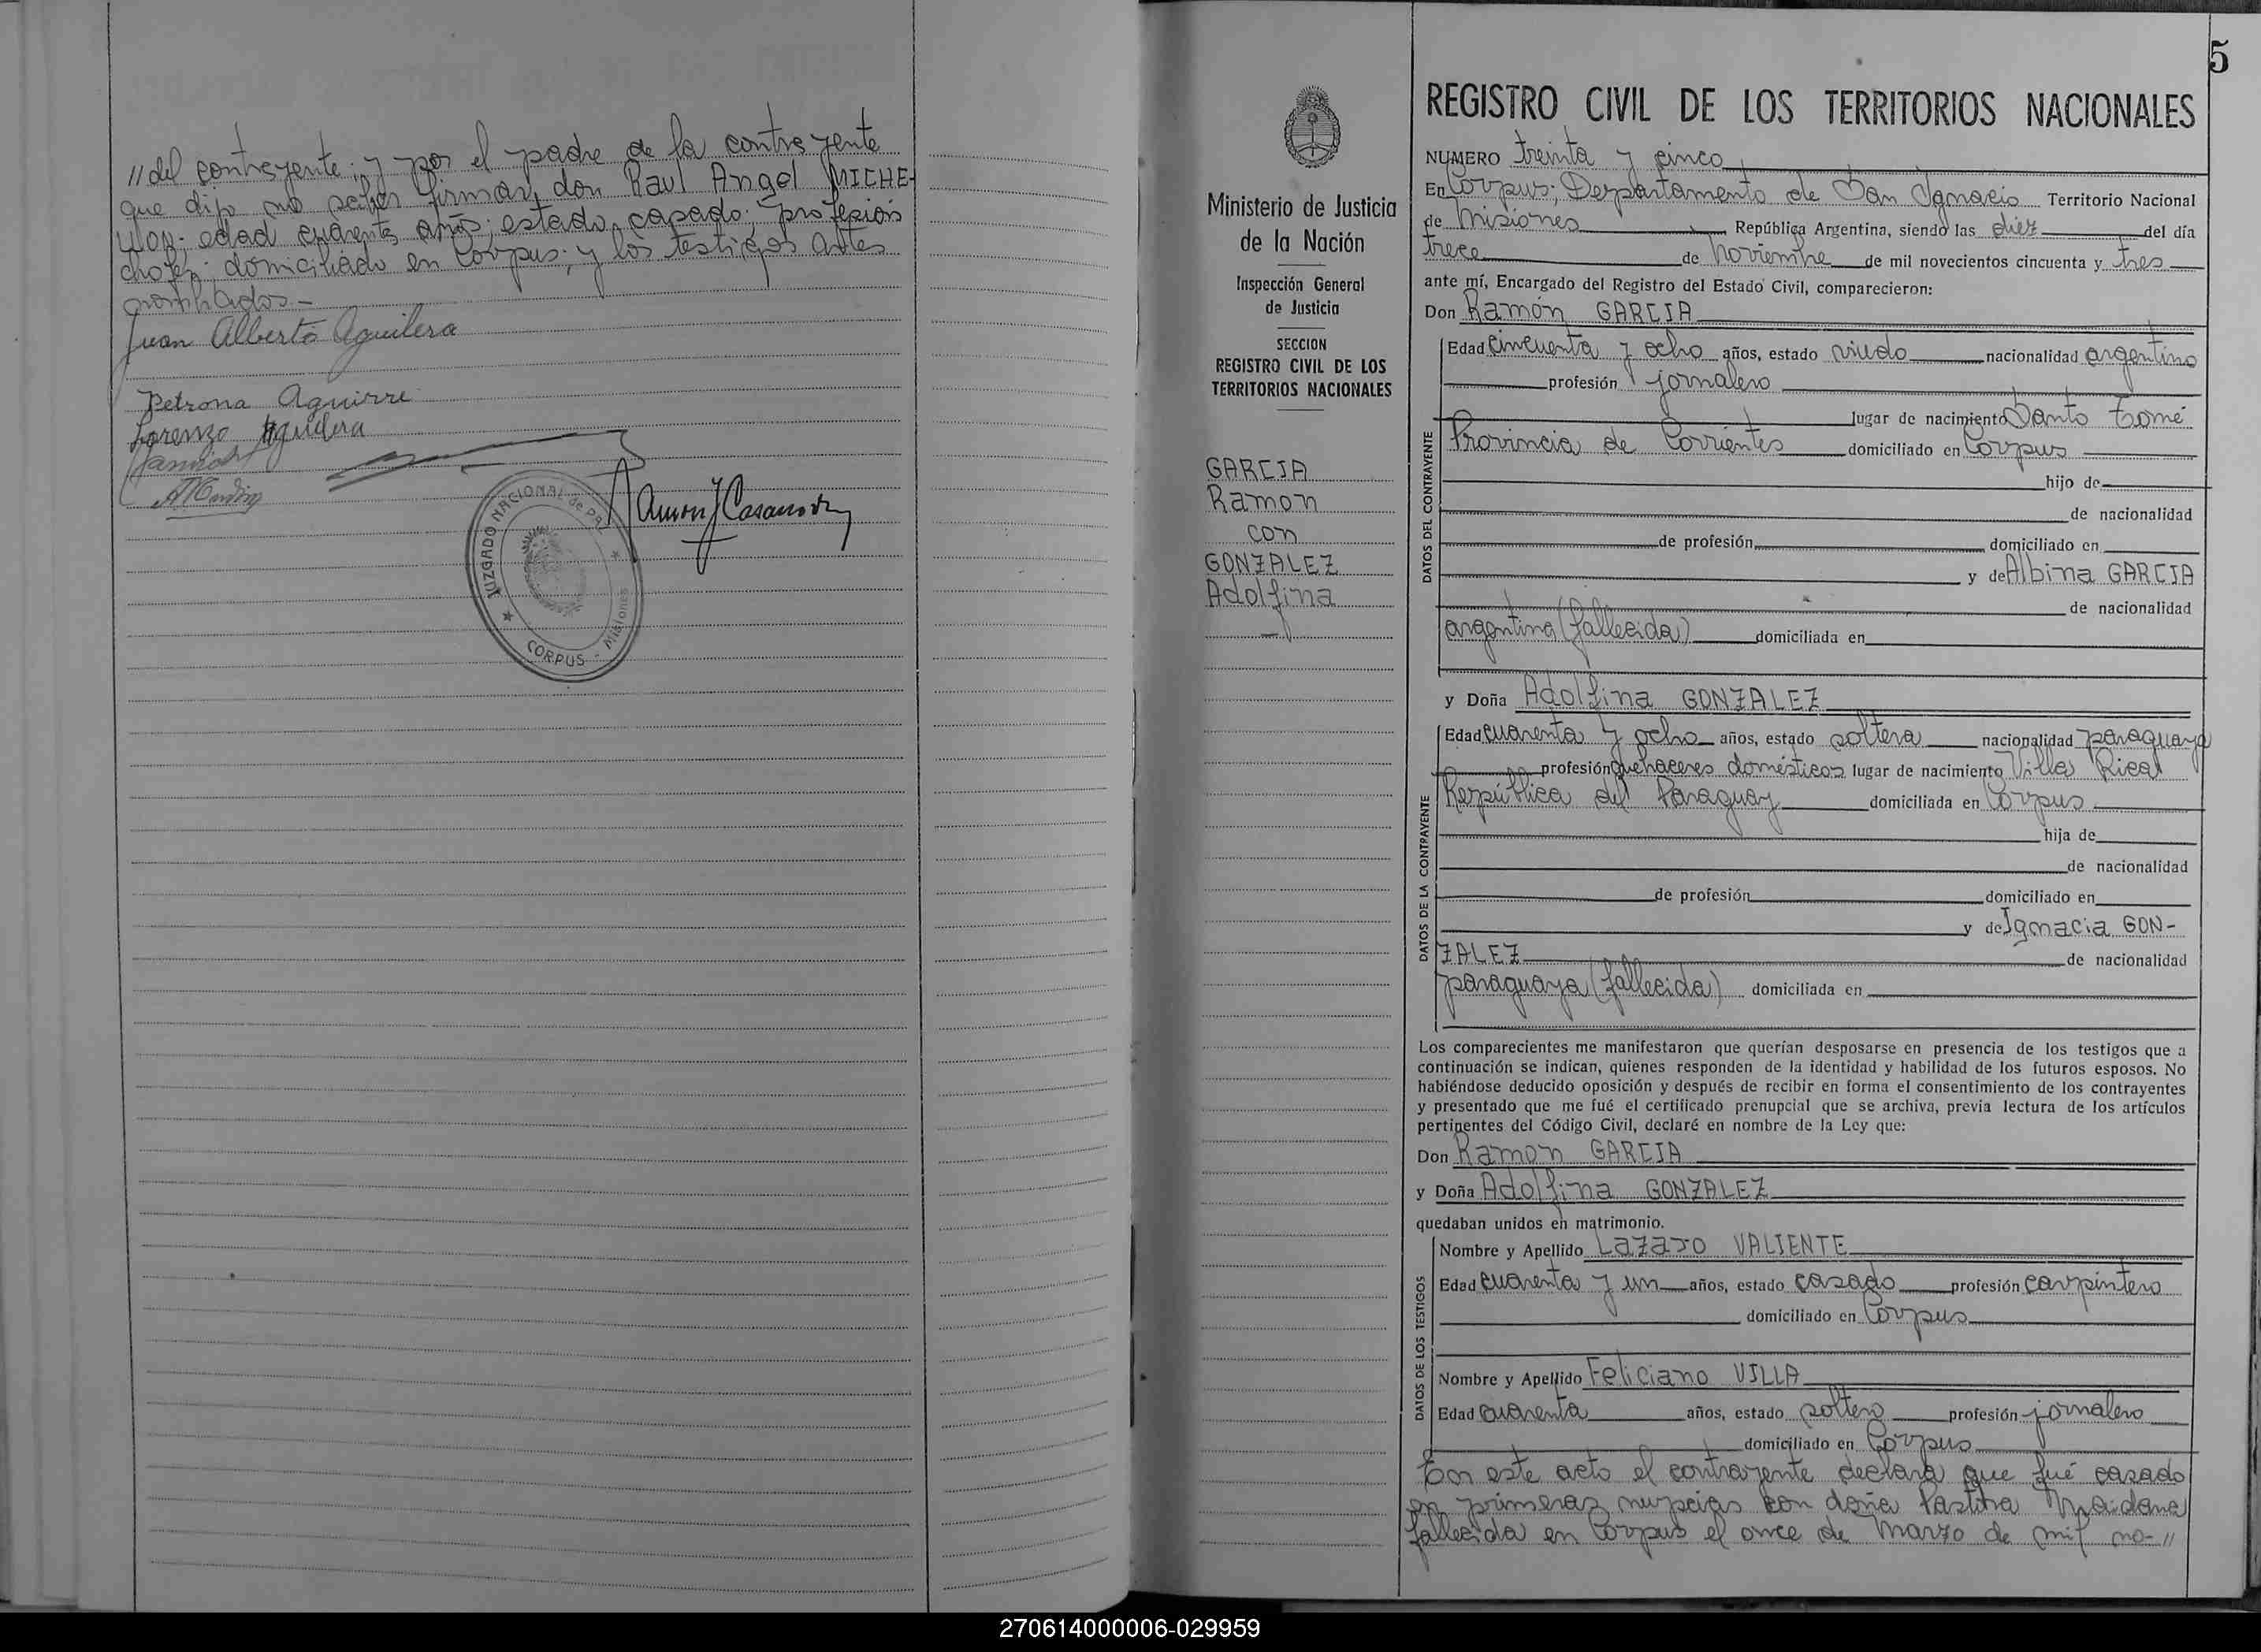 // del contrayente; y por el padre de la contrayente
que dijo no saber firmar, don Raul Angel MICHE-
LLON; edad cuarenta años; estado casado; profesión
chofer; domiciliado en Corpus; y los testigos antes
nombrados.-
Juan Alberto Aguilera
Petrona Aguirre
Lorenzo Aguilera
JUZGADO NACIONAL de PAZ
CORPUS - Misiones
Ramon J Casanova
Ministerio de Justicia
de la Nación
Inspección General
de Justicia
SECCION
REGISTRO CIVIL DE LOS
TERRITORIOS NACIONALES
GARCIA
Ramon
con
GONZALEZ
Adolfina
5
REGISTRO CIVIL DE LOS TERRITORIOS NACIONALES
NUMERO treinta y cinco
En Corpus; Departamento de San Ignacio Territorio Nacional
de Misiones, República Argentina, siendo las diez del día
trece de Noviembre de mil novecientos cincuenta y tres
ante mí, Encargado del Registro del Estado Civil, comparecieron:
Don Ramón GARCIA
DATOS DEL CONTRAYENTE
Edad cincuenta y ocho años, estado viudo nacionalidad argentino
profesión jornalero
lugar de nacimiento Santo Tomé
Provincia de Corrientes domiciliado en Corpus
hijo de
de nacionalidad
de profesión domiciliado en
y de Albina GARCIA
de nacionalidad
argentina (fallecida) domiciliada en
y Doña Adolfina GONZALEZ
DATOS DE LA CONTRAYENTE
Edad cuarenta y ocho años, estado soltera nacionalidad paraguaya
profesión quehaceres domésticos lugar de nacimiento Villa Rica
República del Paraguay domiciliada en Corpus
hija de
de nacionalidad
de profesión domiciliado en
y de Ignacia GON-
ZALEZ de nacionalidad
paraguaya (fallecida) domiciliada en
Los comparecientes me manifestaron que querían desposarse en presencia de los testigos que a
continuación se indican, quienes responden de la identidad y habilidad de los futuros esposos. No
habiéndose deducido oposición y después de recibir en forma el consentimiento de los contrayentes
y presentado que me fué el certificado prenupcial que se archiva, previa lectura de los artículos
pertinentes del Código Civil, declaré en nombre de la Ley que:
Don Ramon GARCIA
y Doña Adolfina GONZALEZ
quedaban unidos en matrimonio.
DATOS DE LOS TESTIGOS
Nombre y Apellido Lazaro VALIENTE
Edad cuarenta y un años, estado casado profesión carpintero
domiciliado en Corpus
Nombre y Apellido Feliciano VILLA
Edad cuarenta años, estado soltero profesión jornalero
domiciliado en Corpus
En este acto el contrayente declara que fué casado
en primeras nupcias con doña Pastora Maidana
fallecida en Corpus el once de Marzo de mil no-//
270614000006-029959